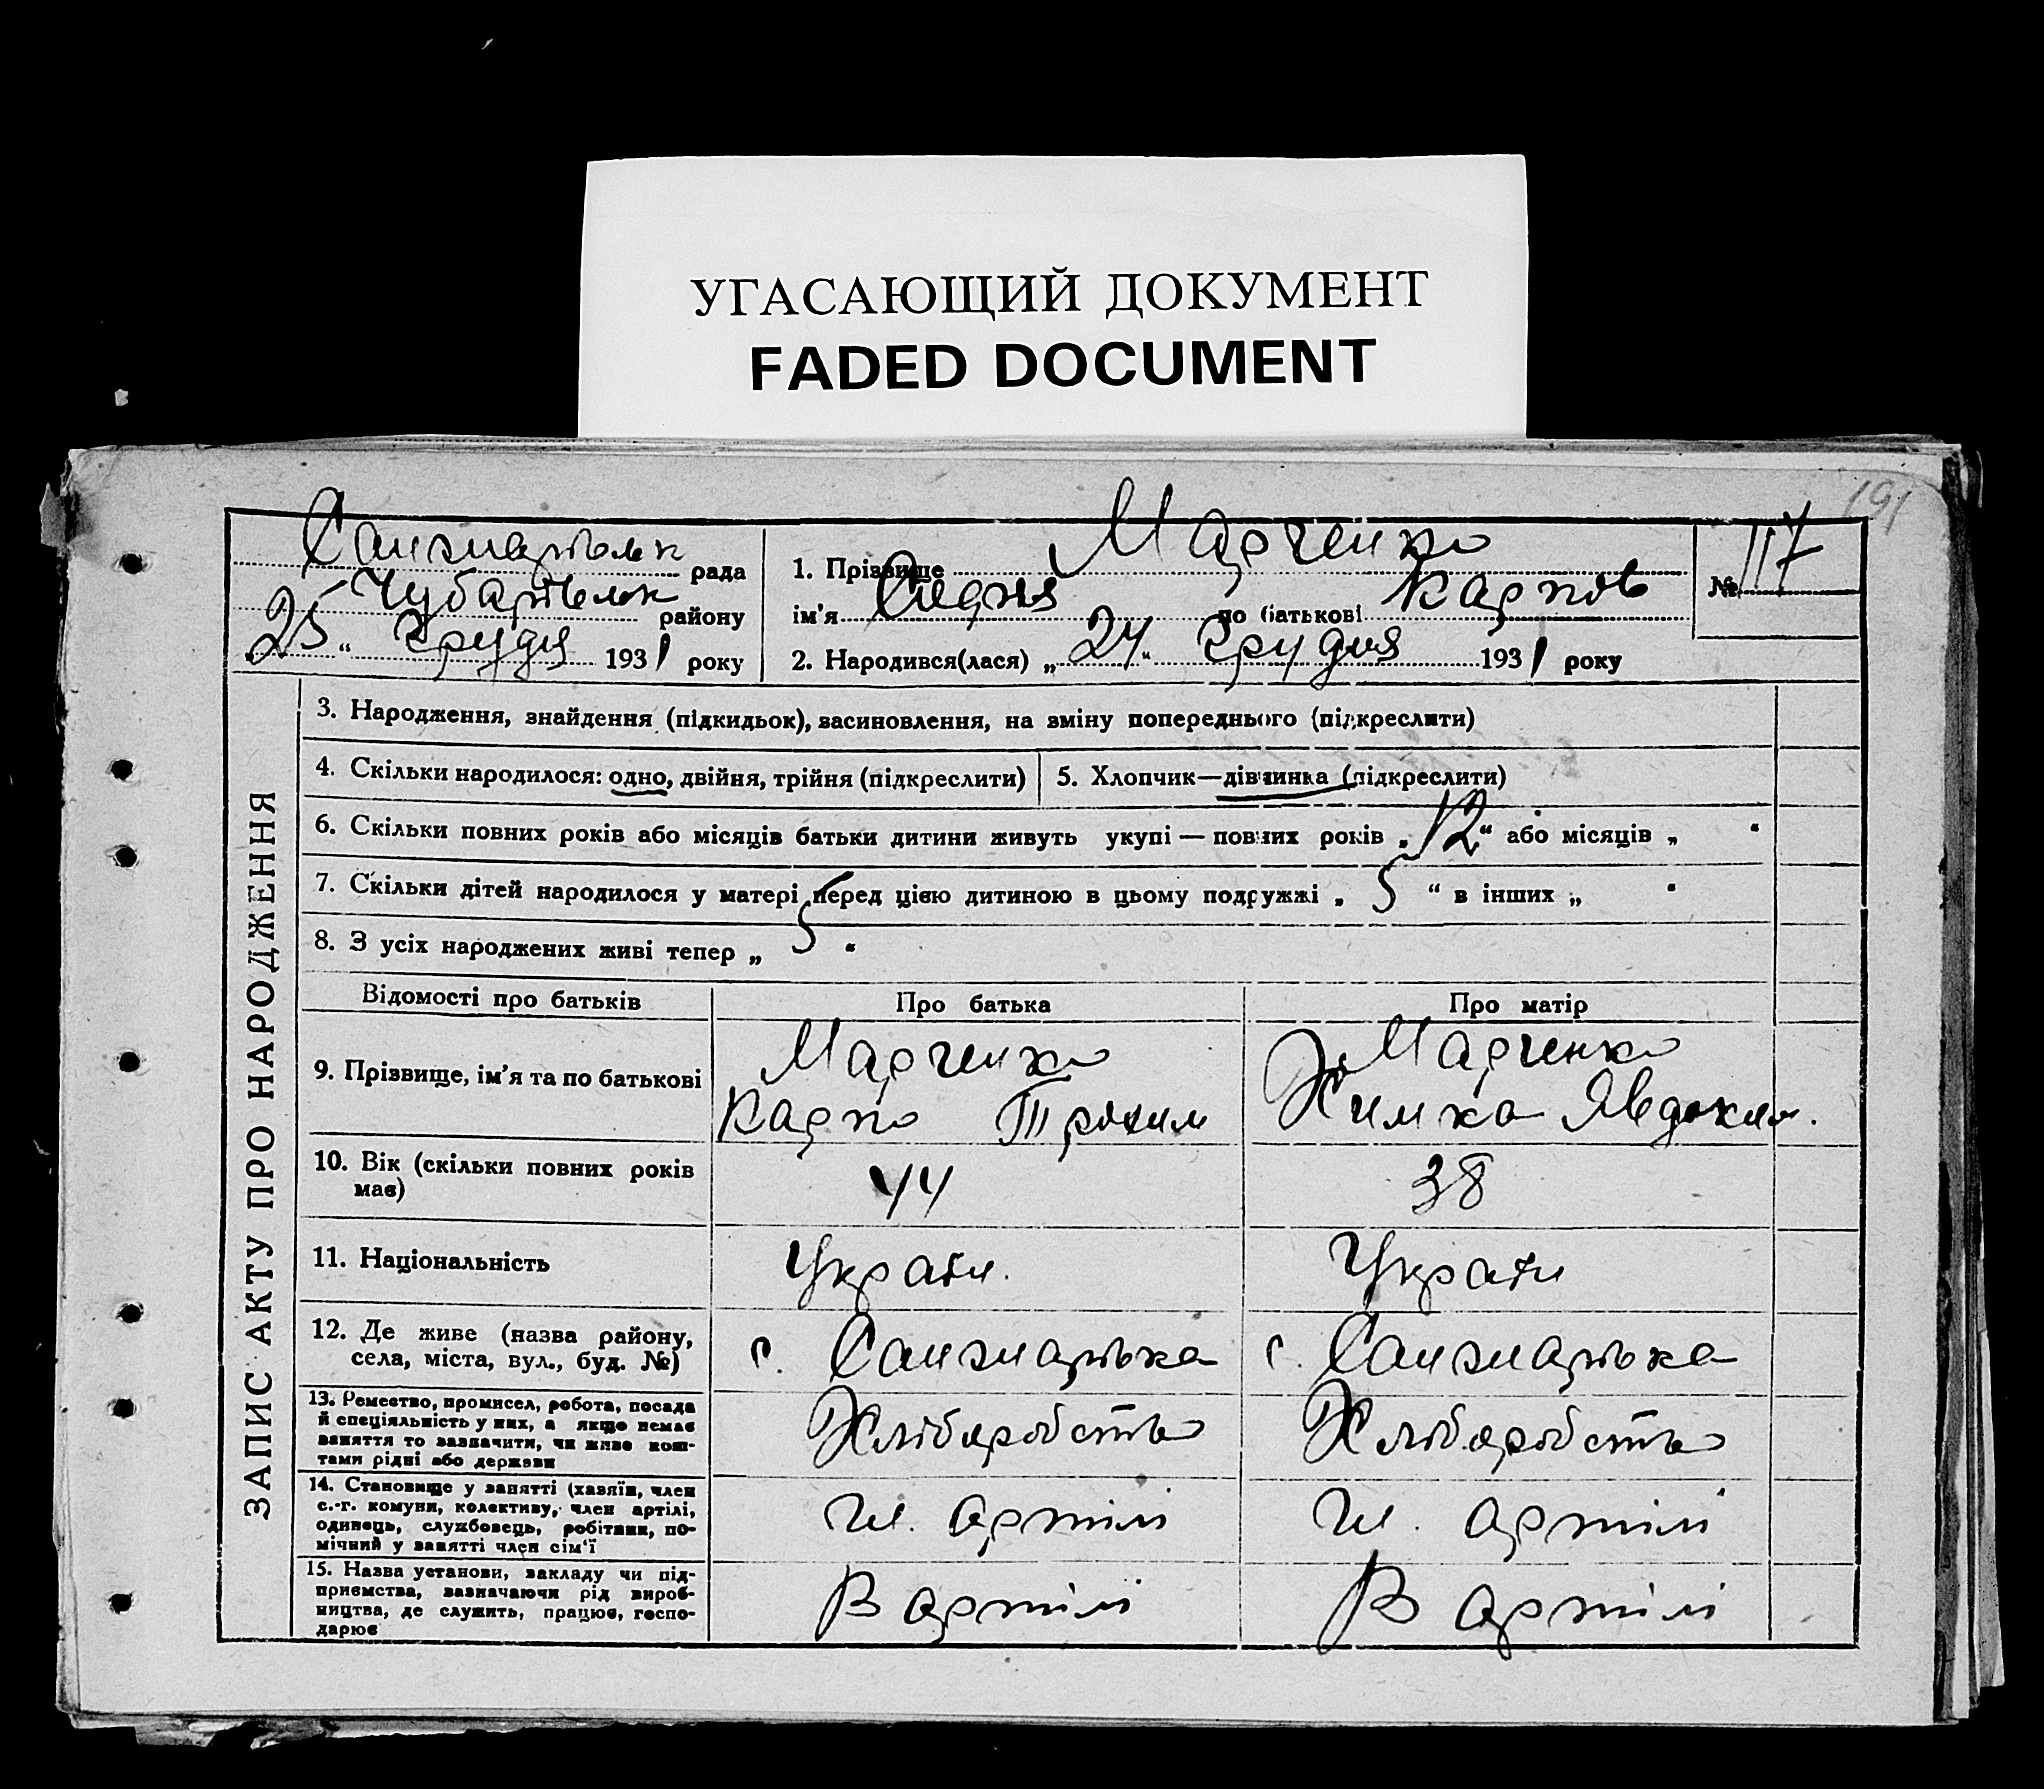 УГАСАЮЩИЙ ДОКУМЕНТ
FADED DOCUMENT
191
рада
Чубарівськ району
25 “ Грудня 1931 року
1. Прізвище Марченко
ім'я по батькові Карпов
2. Народився(лася) „ 24 “ Грудня 1931 року
№ 117
ЗАПИС АКТУ ПРО НАРОДЖЕННЯ
3. Народження, знайдення (підкидьок), засиновлення, на зміну попереднього (підкреслити)
4. Скільки народилося: одно, двійня, трійня (підкреслити)
5. Хлопчик—дівчинка (підкреслити)
6. Скільки повних років або місяців батьки дитини живуть укупі — повних років „ 12 “ або місяців „ “
7. Скільки дітей народилося у матері перед цією дитиною в цьому подружжі „ 5 “ в інших „ “
8. З усіх народжених живі тепер „ 5 “
Відомості про батьків
Про батька
Про матір
9. Прізвище, ім'я та по батькові
Марченко
Карпо Трохим
Марченко
Химка Явдоким.
10. Вік (скільки повних років
має)
44
38
11. Національність
Україн.
Україн
12. Де живе (назва району,
села, міста, вул., буд. №)
с.
с.
13. Ремество, промисел, робота, посада
й спеціяльність у них, а якщо немає
заняття то зазначити, чи живе кош-
тами рідні або держави
Хліборобство
Хліборобство
14. Становище у занятті (хазяїн, член
с.-г. комуни, колективу, член артілі,
одинець, службовець, робітник, по-
мічний у занятті член сім'ї
Чл. артілі
Чл. артілі
15. Назва установи, закладу чи під-
приємства, зазначаючи рід вироб-
ництва, де служить, працює, госпо-
дарює
В артілі
В артілі